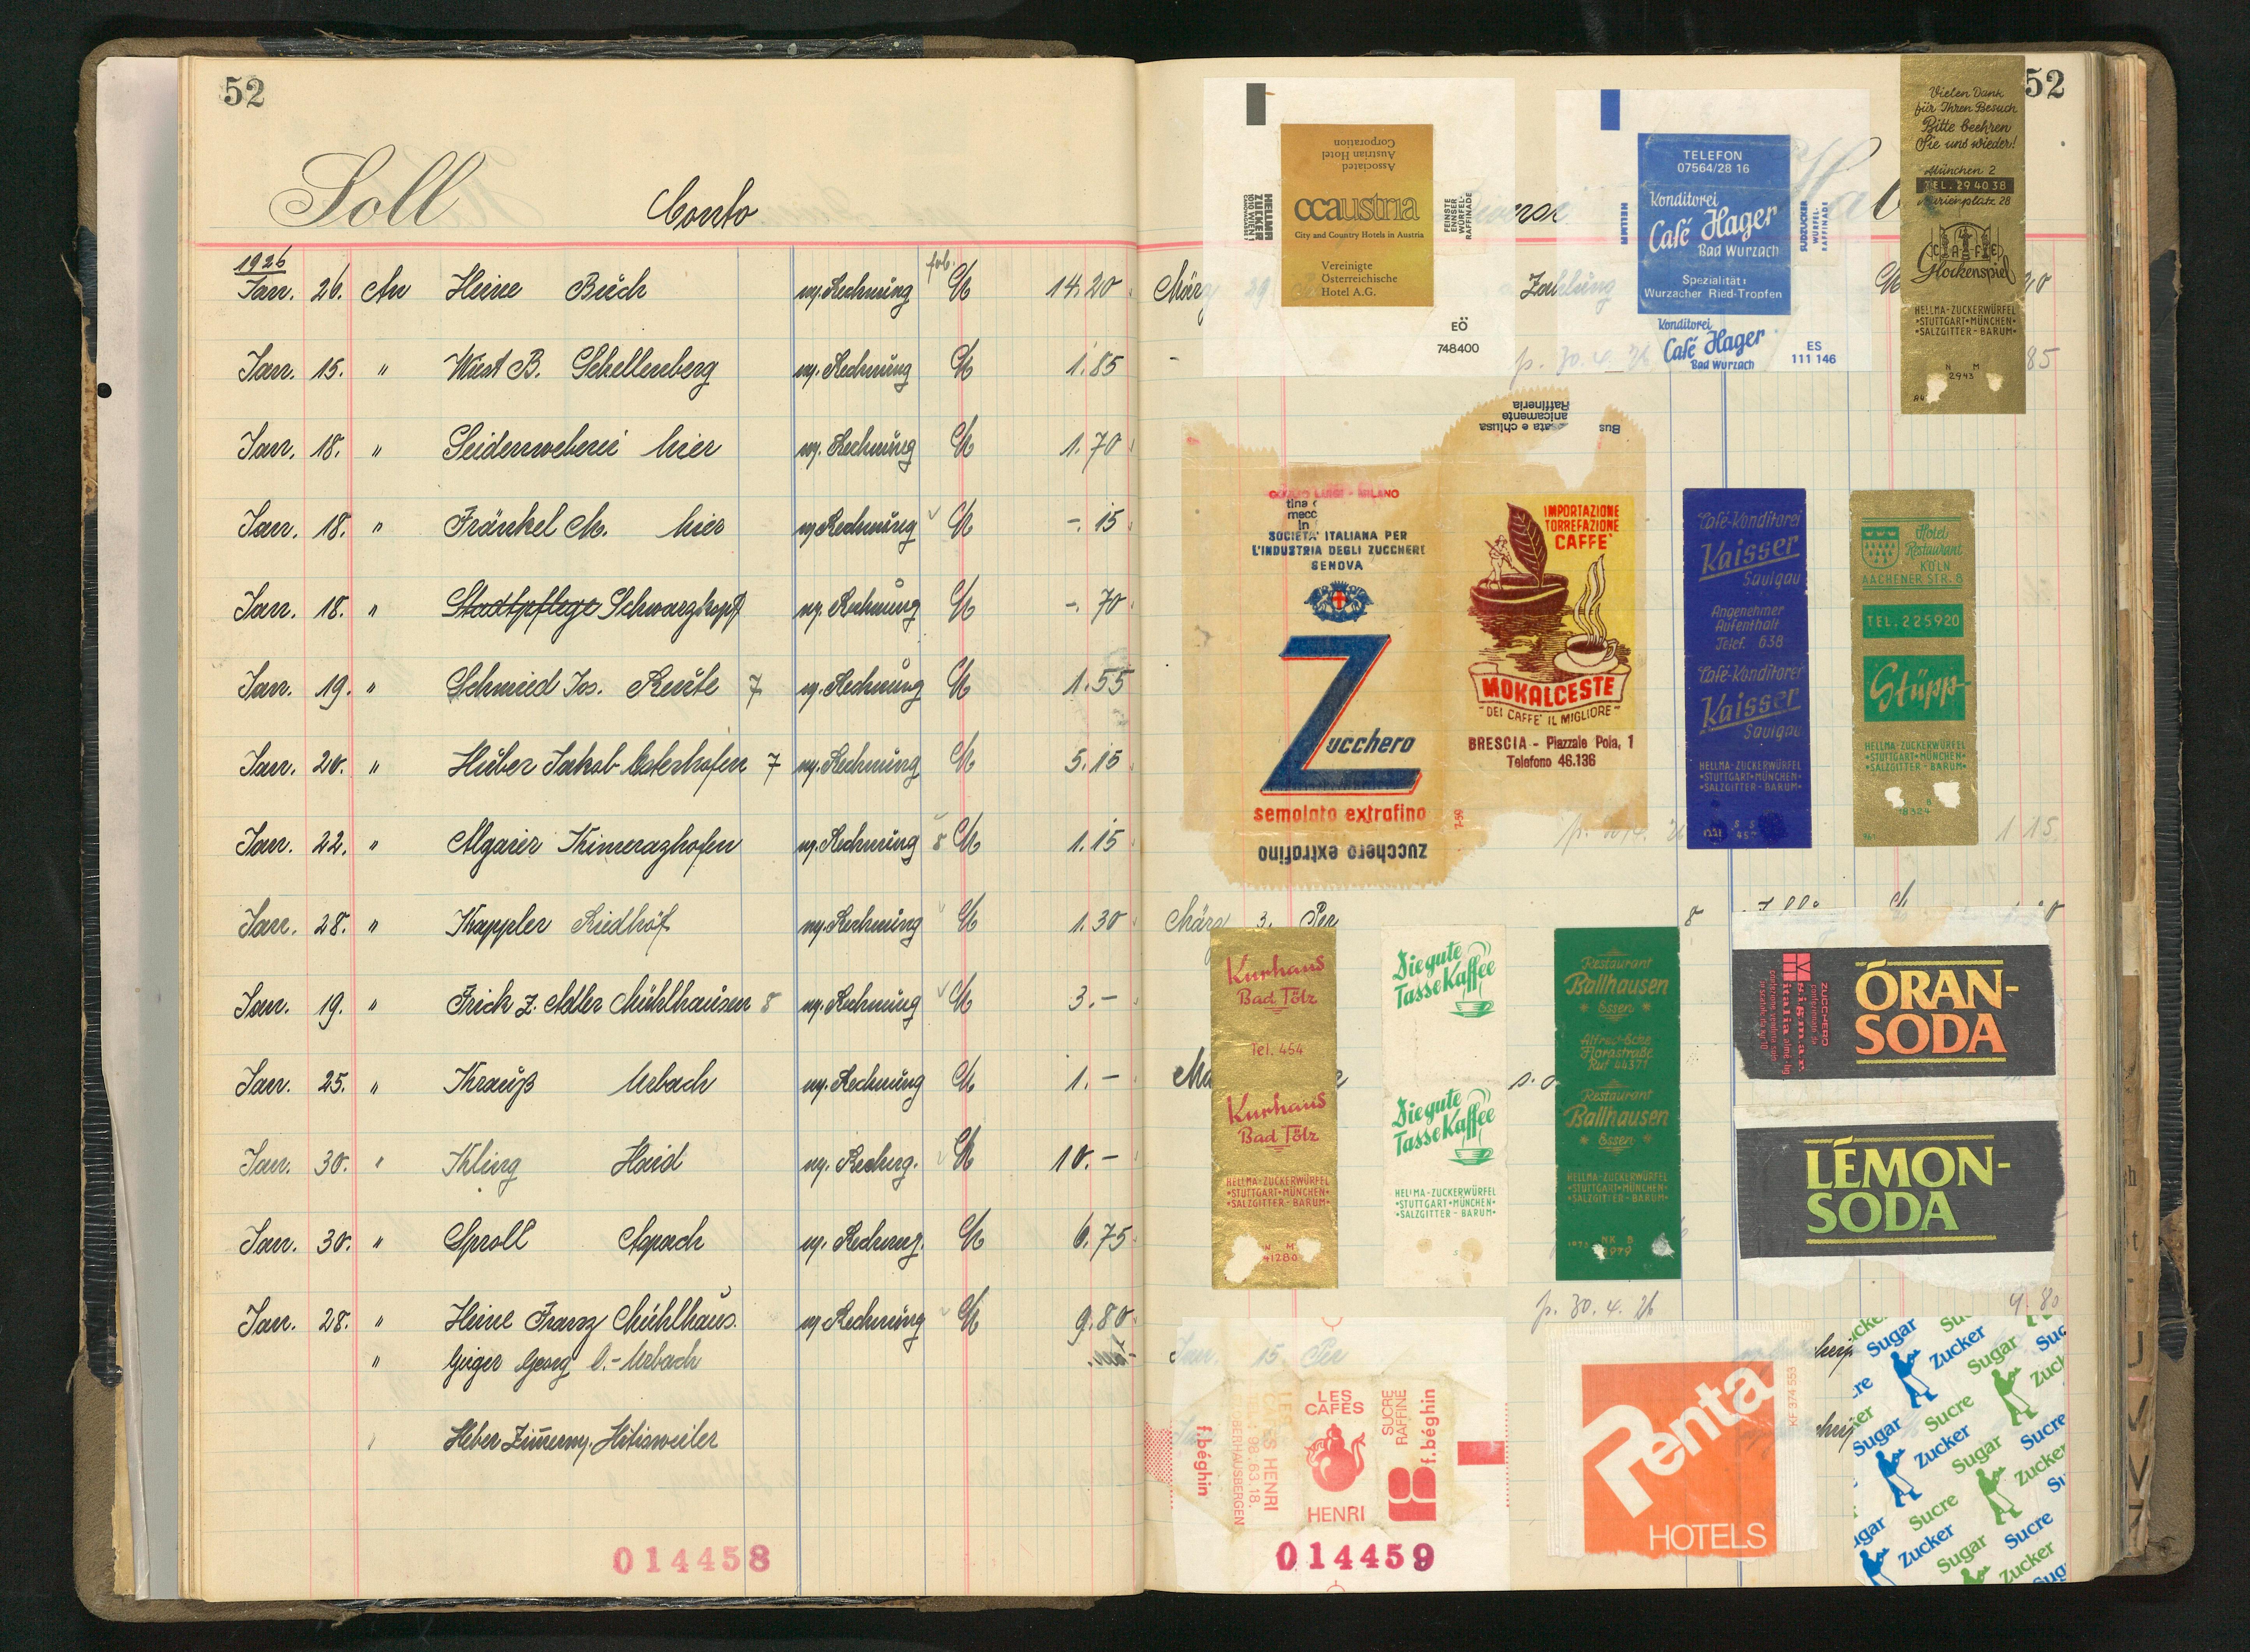 52
Soll Conto
1926
Jan. 26. An Heine Buch m. Rechnung M 14.20
Jan. 15. " Wüst B. Schellenberg m. Rechnung M 1.85
Jan. 18. " Seidenweberei hier m. Rechnung M 1.70
Jan. 18. " Fränkel M. hier m. Rechnung M -.15
Jan. 18. " Stadtpflege Schwarzkopf m. Rechnung M -.70
Jan. 19. " Schmied Jos. Reute 7 m. Rechnung M 1.55
Jan. 20. " Huber Jakob Osterhofen 7 m. Rechnung M 5.15
Jan. 22. " Algaier Kimerazhofen m. Rechnung 8 M 1.15
Jan. 28. " Kappler Riedhof m. Rechnung M 1.30
Jan. 19. " Frick z. Adler Mühlhausen 8 m. Rechnung M 3.-
Jan. 25. " Krauß Urbach m. Rechnung M 1.-
Jan. 30. " Kling Haid m. M 10.-
Jan. 30. " Sproll Aspach m. M 6.75
Jan. 28. " Heine Franz Mühlhaus. m Rechnung M 9.80
" Geiger Georg Urbach
Heber
014458
52
Associated
Austrian Hotel
Corporation
ccaustria
City and Country Hotels in Austria
Vereinigte
Österreichische
Hotel A.G.
HELLMA
ZUCKER
1010 WIEN 1
FEINSTE
ENNSER
WÜRFEL-
RAFFINADE
EÖ
748400
TELEFON
07564/28 16
Konditorei
Café Hager
Bad Wurzach
Spezialität:
Wurzacher Ried-Tropfen
HELLMA
SÜDZUCKER
WÜRFEL-
RAFFINADE
Konditorei
Café Hager
Bad Wurzach
ES
111 146
Vielen Dank
für Ihren Besuch
Bitte beehren
Sie uns wieder!
München 2
TEL. 29 40 38
Marienplatz 28
CAFE
Glockenspiel
HELLMA-ZUCKERWÜRFEL
•STUTTGART•MÜNCHEN•
•SALZGITTER-BARUM•
N M
2943
März
p. 30.4.26
85
LUIGI - MILANO
tina
mecc
in
SOCIETA' ITALIANA PER
L'INDUSTRIA DEGLI ZUCCHERI
GENOVA
Zucchero
semolato extrafino
zucchero extrafino
Bus
sata e chiusa
anicamente
Raffineria
IMPORTAZIONE
TORREFAZIONE
CAFFE'
MOKALCESTE
"DEI CAFFE' IL MIGLIORE"
BRESCIA - Piazzale Pola, 1
Telefono 46.136
Café-Konditorei
Kaisser
Saulgau
Angenehmer
Aufenthalt
Telef. 638
Café-Konditorei
Kaisser
Saulgau
HELLMA-ZUCKERWÜRFEL
•STUTTGART•MÜNCHEN•
•SALZGITTER-BARUM•
Hotel
Restaurant
KÖLN
AACHENER STR. 8
TEL. 225920
Stüpp
HELLMA-ZUCKERWÜRFEL
•STUTTGART•MÜNCHEN•
•SALZGITTER-BARUM•
1 15
März 3. Per 8
Kurhaus
Bad Tölz
Tel. 454
Kurhaus
Bad Tölz
HELLMA-ZUCKERWÜRFEL
•STUTTGART•MÜNCHEN•
•SALZGITTER-BARUM•
41280
Die gute
Tasse Kaffee
Die gute
Tasse Kaffee
HELLMA-ZUCKERWÜRFEL
•STUTTGART•MÜNCHEN•
•SALZGITTER-BARUM•
Restaurant
Ballhausen
* Essen *
Alfred-Ecke
Florastraße
Ruf 44371
Restaurant
Ballhausen
* Essen *
HELLMA-ZUCKERWÜRFEL
•STUTTGART•MÜNCHEN•
•SALZGITTER-BARUM•
NK B
1979
ZUCCHERO
confezionato da
s.i.g.m.a.r.
italia
ORAN-
SODA
LEMON-
SODA
p. 30.4.26
9.80
Jan. 15 Per
f.béghin
LES
CAFES
HENRI
SUCRE
RAFFINE
f.béghin
014459
Penta
HOTELS
KF 374 553
Sugar Zucker Sucre
Sugar Zucker Sucre
Sugar Zucker Sucre
Sugar Zucker Sucre